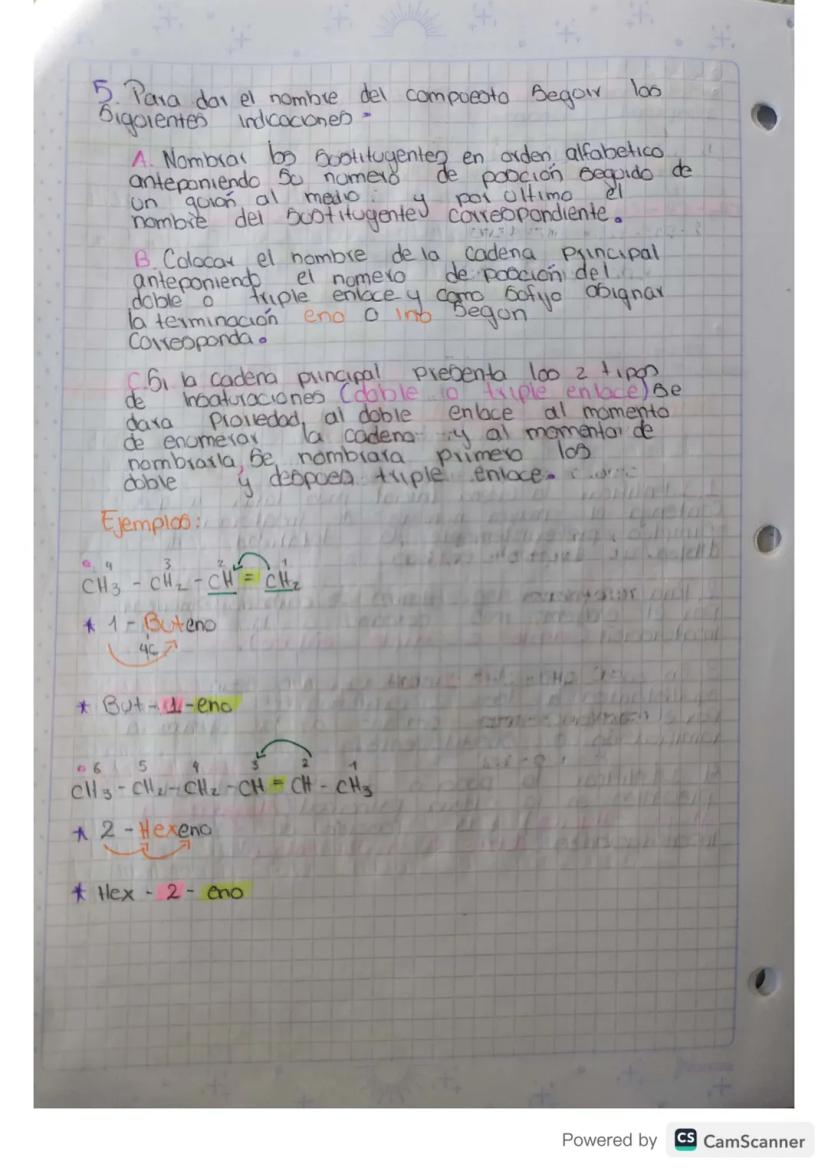 5. Para dar el nombre del compuesto Seguir los
Siguientes indicaciones.
A. Nombrar los Sustituyentes en orden alfabetico
anteponiendo Su numero de posición seguido de
un guión al medio y por ultimo el
nombre del Sustituyentes correspondiente.
B. Colocar el nombre de la cadena principal
anteponiendo el numero de posición del
doble o triple enlace y como Sofijo asignar
la terminación eno o ino Segun
Corresponda.
C. Si la cadena principal presenta los 2 tipos
de Insaturaciones (doble o triple enlace) Se
dara Prioriedad al doble enlace al momento
de enumerar la cadena y al momentor de
nombrarla, Se nombrara primero los
doble y despues triple enlace.
Ejemplos:
4 3 2 1
CH3 - CH2 - CH = CH2
* 1 - Buteno
4C
* But - 1 - eno
6 5 4 3 2 1
CH3 - CH2 - CH2 - CH = CH - CH3
* 2 - Hexeno
* Hex - 2 - eno
Powered by CS CamScanner